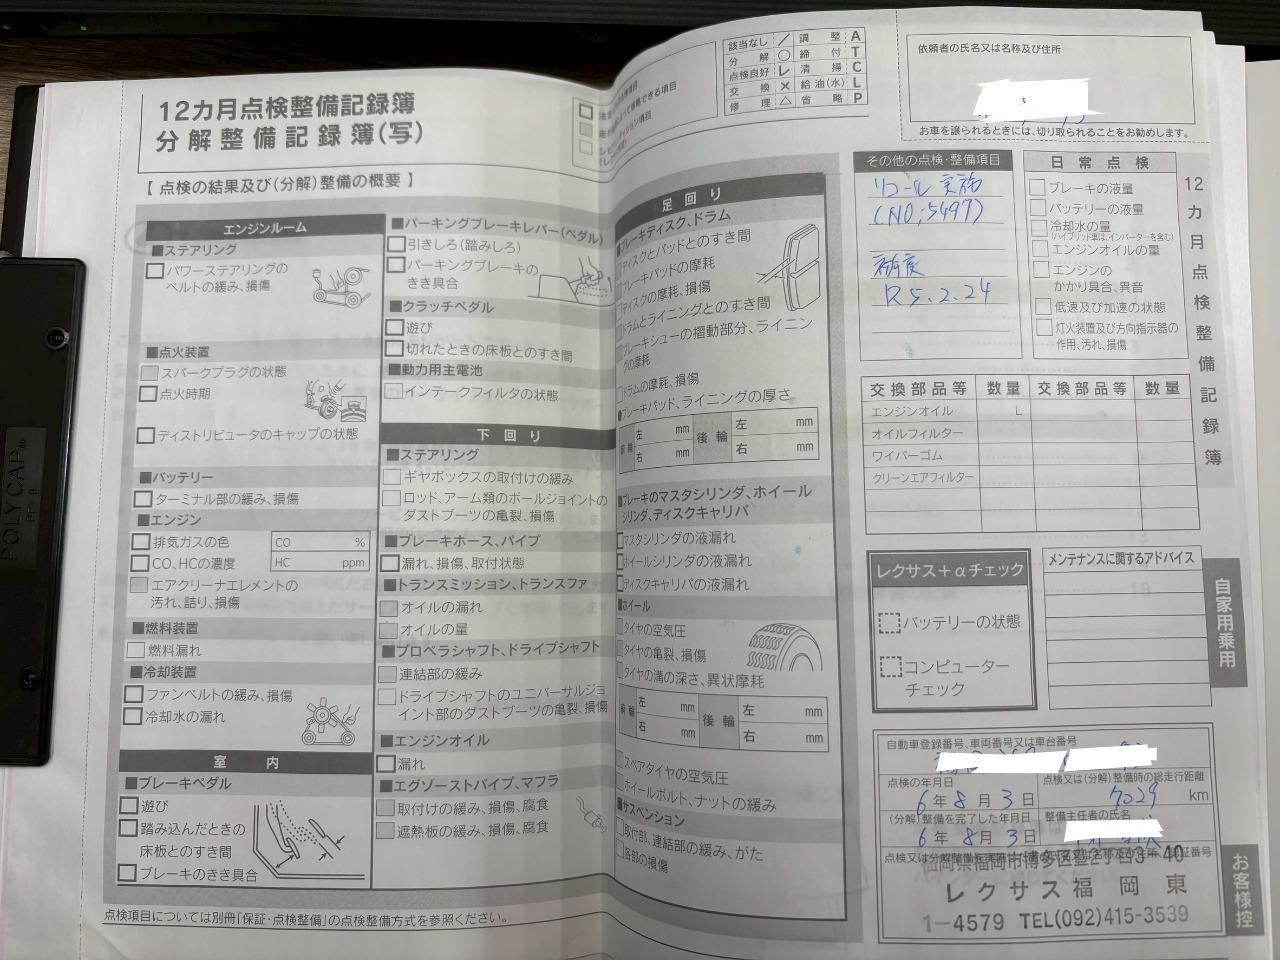 12カ月点検整備記録簿
分解整備記録簿(写)
【 点検の結果及び(分解)整備の概要 】
該当なし ／ 調整 A
分解 ○ 締付 T
点検良好 レ 清掃 C
交換 × 給油(水) L
修理 △ 省略 P
依頼者の氏名又は名称及び住所
お車を譲られるときには、切り取られることをお勧めします。
エンジンルーム
■ステアリング
パワーステアリングの
ベルトの緩み、損傷
■点火装置
スパークプラグの状態
点火時期
ディストリビュータのキャップの状態
■バッテリー
ターミナル部の緩み、損傷
■エンジン
排気ガスの色
CO %
CO、HCの濃度
HC ppm
エアクリーナエレメントの
汚れ、詰り、損傷
■燃料装置
燃料漏れ
■冷却装置
ファンベルトの緩み、損傷
冷却水の漏れ
室内
■ブレーキペダル
遊び
踏み込んだときの
床板とのすき間
ブレーキのきき具合
■パーキングブレーキレバー(ペダル)
引きしろ(踏みしろ)
パーキングブレーキの
きき具合
■クラッチペダル
遊び
切れたときの床板とのすき間
■動力用主電池
インテークフィルタの状態
下回り
■ステアリング
ギヤボックスの取付けの緩み
ロッド、アーム類のボールジョイントの
ダストブーツの亀裂、損傷
■ブレーキホース、パイプ
漏れ、損傷、取付状態
■トランスミッション、トランスファ
オイルの漏れ
オイルの量
■プロペラシャフト、ドライブシャフト
連結部の緩み
ドライブシャフトのユニバーサルジョ
イント部のダストブーツの亀裂、損傷
■エンジンオイル
漏れ
■エグゾーストパイプ、マフラ
取付けの緩み、損傷、腐食
遮熱板の緩み、損傷、腐食
足回り
■ブレーキディスク、ドラム
ディスクとパッドとのすき間
ブレーキパッドの摩耗
ディスクの摩耗、損傷
ドラムとライニングとのすき間
ブレーキシューの摺動部分、ライニン
グの摩耗
ドラムの摩耗、損傷
●ブレーキパッド、ライニングの厚さ
前輪 左 mm 後輪 左 mm
右 mm 右 mm
■ブレーキのマスタシリンダ、ホイール
シリンダ、ディスクキャリパ
マスタシリンダの液漏れ
ホイールシリンダの液漏れ
ディスクキャリパの液漏れ
■ホイール
タイヤの空気圧
タイヤの亀裂、損傷
タイヤの溝の深さ、異状摩耗
前輪 左 mm 後輪 左 mm
右 mm 右 mm
スペアタイヤの空気圧
ホイールボルト、ナットの緩み
■サスペンション
取付部、連結部の緩み、がた
各部の損傷
その他の点検・整備項目
リコール実施
(NO;5497)
初度
R5.2.24
日常点検
ブレーキの液量
バッテリーの液量
冷却水の量
(ハイブリッド車は、インバーターを含む)
エンジンオイルの量
エンジンの
かかり具合、異音
低速及び加速の状態
灯火装置及び方向指示器の
作用、汚れ、損傷
12カ月点検整備記録簿
交換部品等 数量 交換部品等 数量
エンジンオイル L
オイルフィルター
ワイパーゴム
クリーンエアフィルター
レクサス+αチェック
バッテリーの状態
コンピューター
チェック
メンテナンスに関するアドバイス
自家用乗用
自動車登録番号、車両番号又は車台番号
点検の年月日
6年8月3日
点検又は(分解)整備時の総走行距離
7029 km
(分解)整備を完了した年月日
6年8月3日
整備主任者の氏名
福岡県福岡市博多区豊2丁目3-40
レクサス福岡東
1-4579 TEL(092)415-3539
お客様控
点検項目については別冊「保証・点検整備」の点検整備方式を参照ください。
POLYCAP